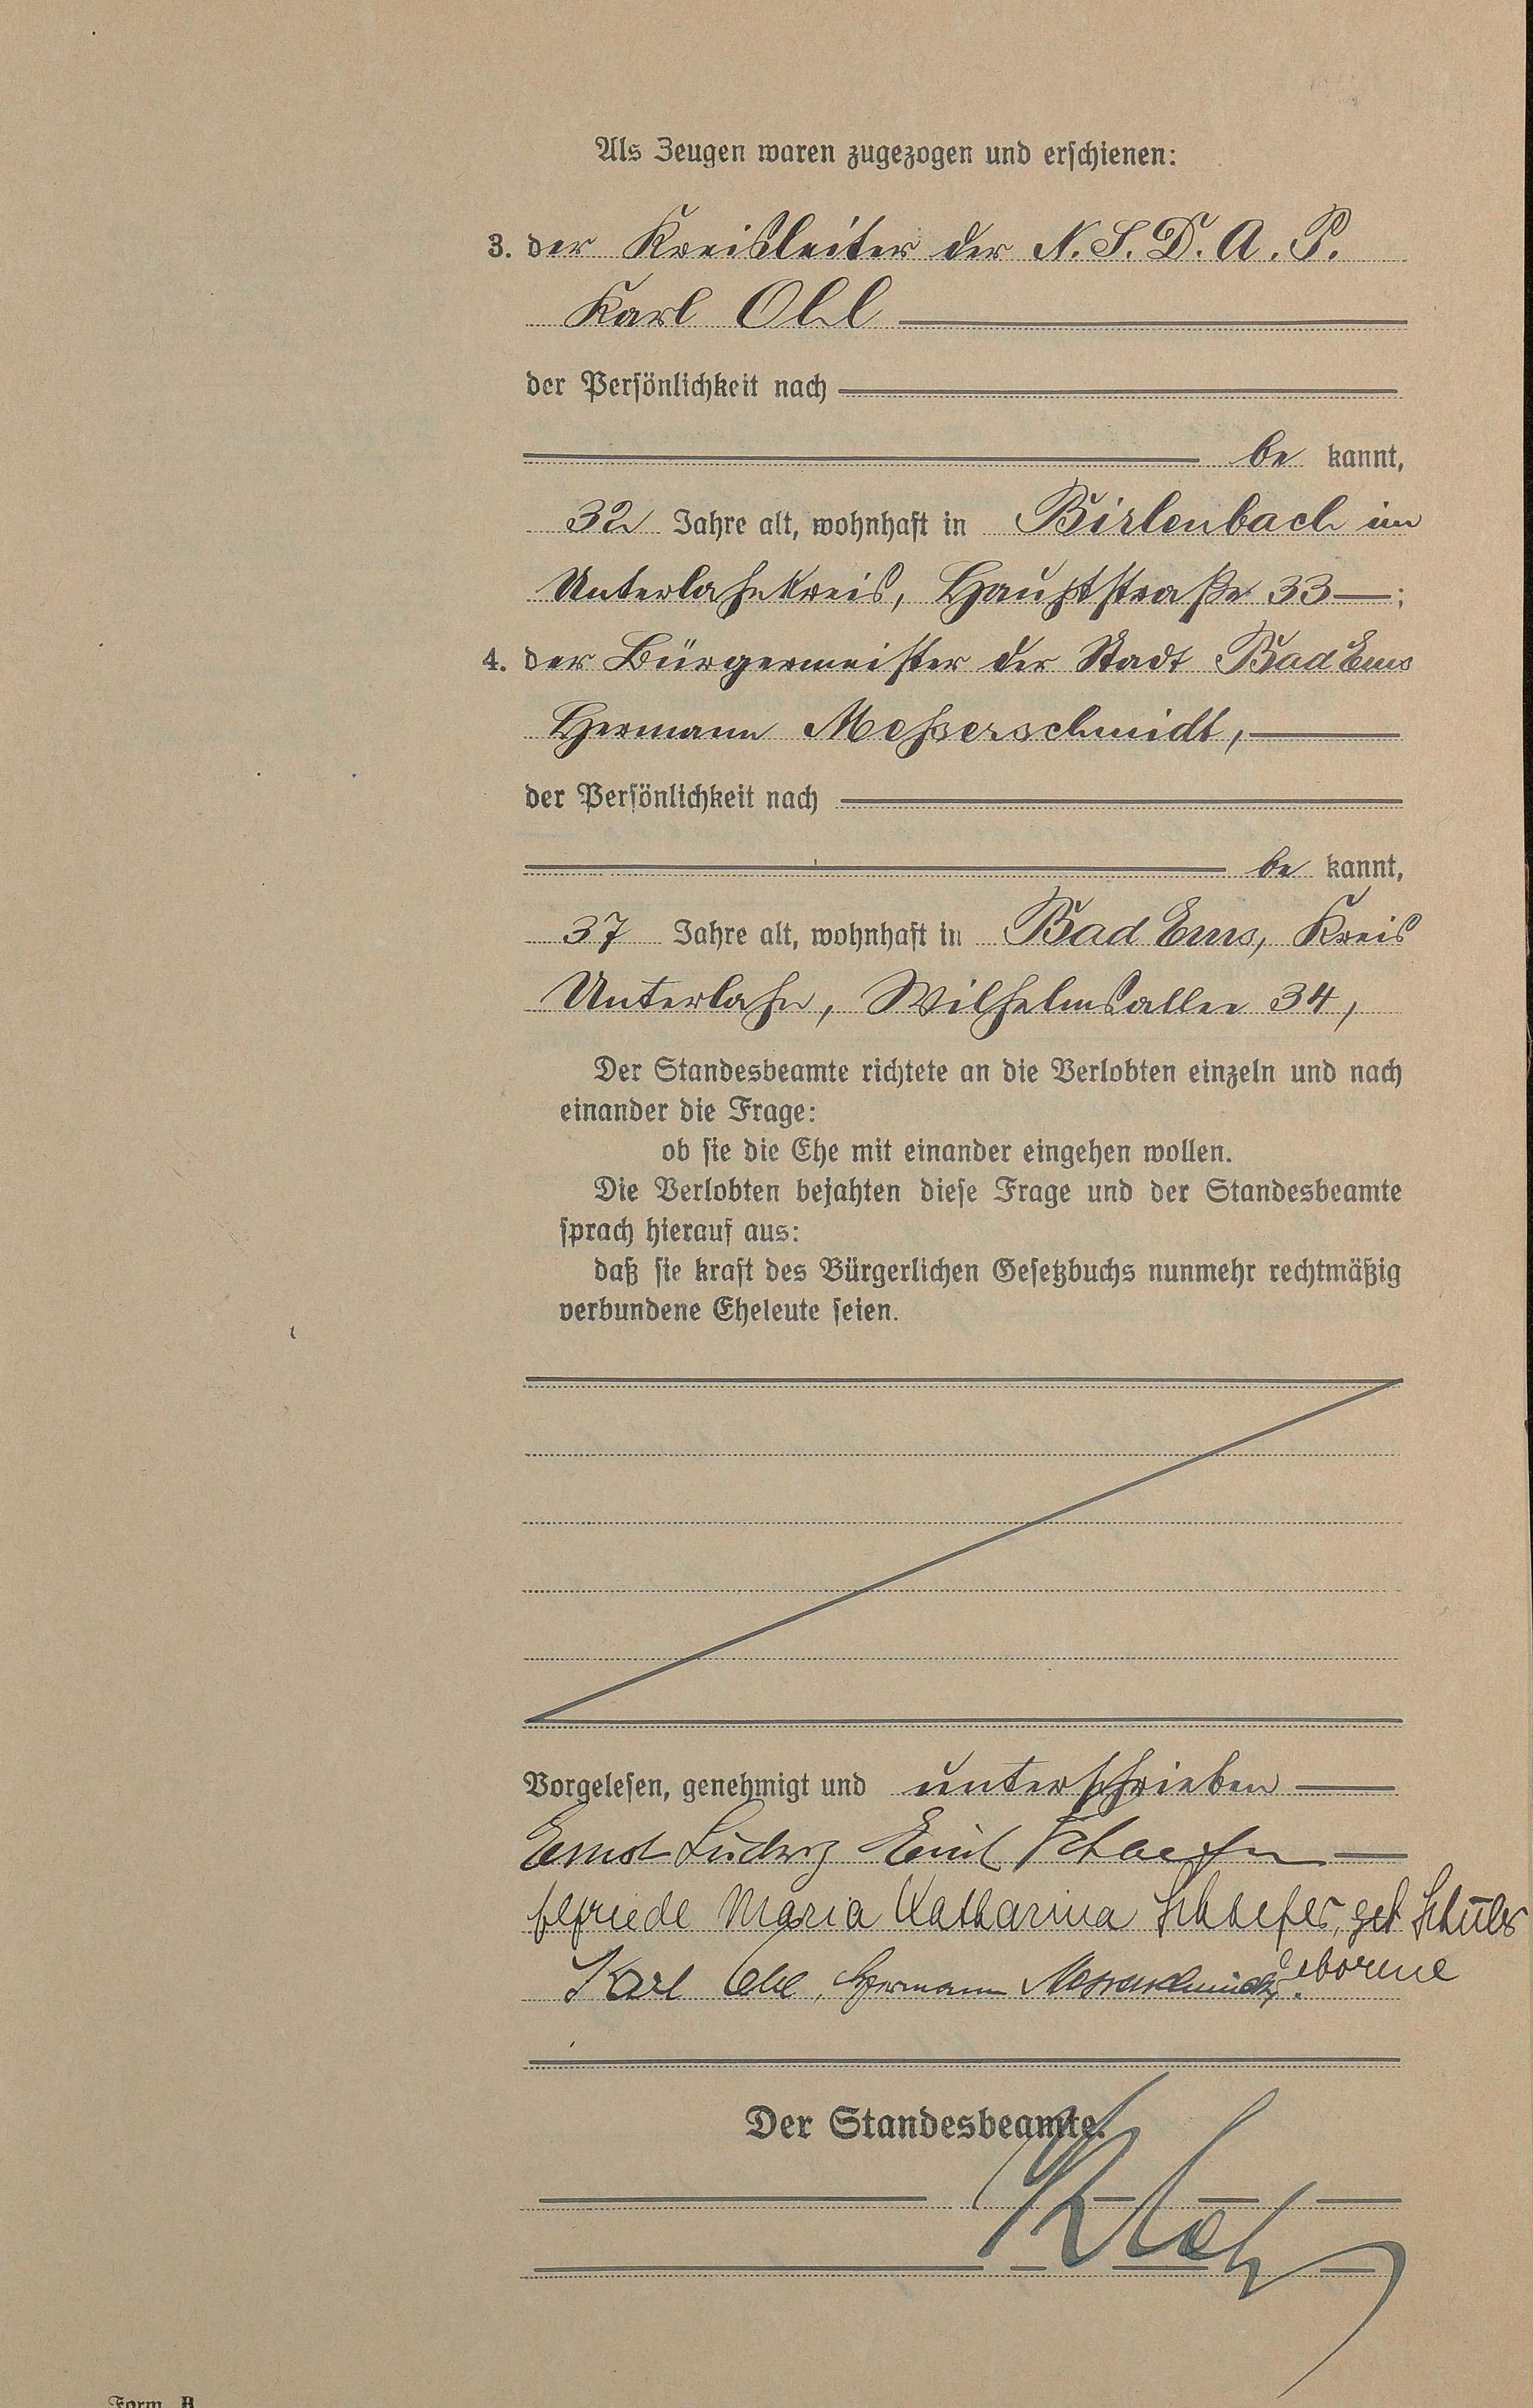 Als Zeugen waren zugezogen und erschienen:
3. der Kreisleiter der N.S.D.A.P.
Karl Ohl
der Persönlichkeit nach
be kannt,
32 Jahre alt, wohnhaft in Birlenbach im
Unterlahnkreis, Hauptstraße 33 ;
4. der Bürgermeister der Stadt Bad Ems
Hermann Messerschmidt,
der Persönlichkeit nach
be kannt,
37 Jahre alt, wohnhaft in Bad Ems, Kreis
Unterlahn, Wilhelmsallee 34,
Der Standesbeamte richtete an die Verlobten einzeln und nach
einander die Frage:
ob sie die Ehe mit einander eingehen wollen.
Die Verlobten bejahten diese Frage und der Standesbeamte
sprach hierauf aus:
daß sie kraft des Bürgerlichen Gesetzbuchs nunmehr rechtmäßig
verbundene Eheleute seien.
Vorgelesen, genehmigt und unterschrieben
Ernst Ludwig Emil Schaefer
Maria Katharina Schaefer, geb
Karl Ohl, Hermann Messerschmidt, geborene
Der Standesbeamte.
Form. B